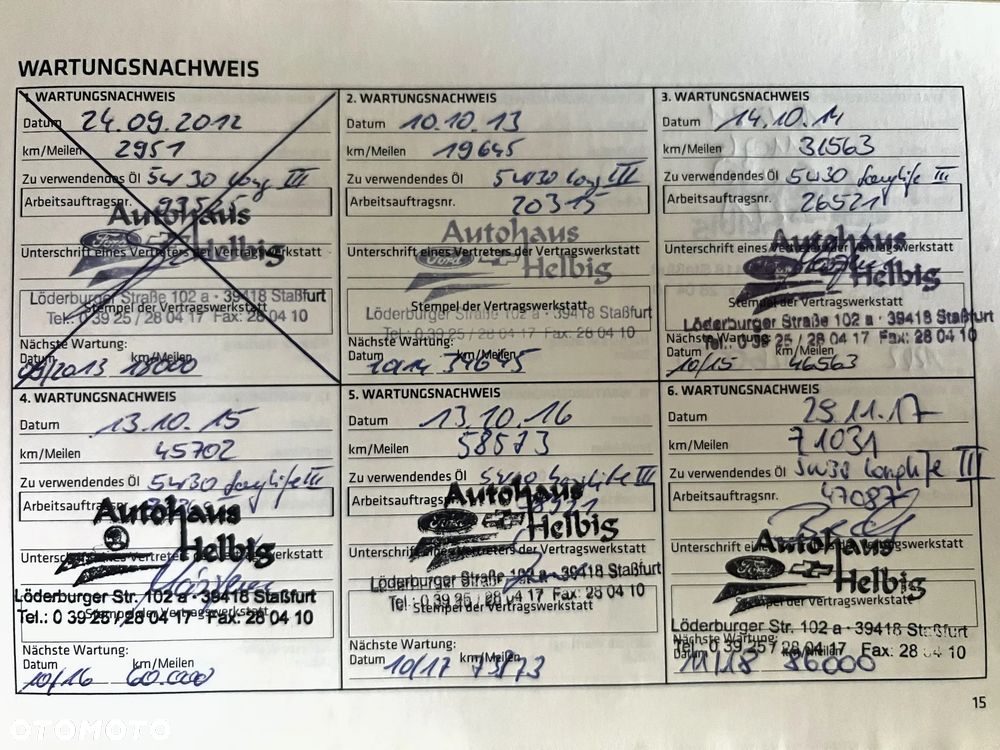 WARTUNGSNACHWEIS
1. WARTUNGSNACHWEIS
Datum 24.09.2012
km/Meilen 2951
Zu verwendendes Öl 5w30 Long III
Arbeitsauftragsnr.
Autohaus
Ford Helbig
Unterschrift eines Vertreters der Vertragswerkstatt
Löderburger Straße 102 a · 39418 Staßfurt
Stempel der Vertragswerkstatt
Tel.: 0 39 25 / 28 04 17 Fax: 28 04 10
Nächste Wartung:
Datum km/Meilen
09/2013 18000
2. WARTUNGSNACHWEIS
Datum 10.10.13
km/Meilen 19645
Zu verwendendes Öl 5W30 Long III
Arbeitsauftragsnr. 20315
Autohaus
Ford Helbig
Unterschrift eines Vertreters der Vertragswerkstatt
Stempel der Vertragswerkstatt
Löderburger Straße 102 a · 39418 Staßfurt
Tel.: 0 39 25 / 28 04 17 Fax: 28 04 10
Nächste Wartung:
Datum km/Meilen
10/14 34645
3. WARTUNGSNACHWEIS
Datum 14.10.14
km/Meilen 31563
Zu verwendendes Öl 5W30 Longlife III
Arbeitsauftragsnr. 26521
Autohaus
Ford Helbig
Unterschrift eines Vertreters der Vertragswerkstatt
Stempel der Vertragswerkstatt
Löderburger Straße 102 a · 39418 Staßfurt
Tel.: 0 39 25 / 28 04 17 Fax: 28 04 10
Nächste Wartung:
Datum km/Meilen
10/15 46563
4. WARTUNGSNACHWEIS
Datum 13.10.15
km/Meilen 45702
Zu verwendendes Öl 5W30 Longlife III
Arbeitsauftragsnr.
Autohaus
Helbig
Unterschrift eines Vertreters der Vertragswerkstatt
Löderburger Str. 102 a · 39418 Staßfurt
Stempel der Vertragswerkstatt
Tel.: 0 39 25 / 28 04 17 Fax: 28 04 10
Nächste Wartung:
Datum km/Meilen
10/16 60.000
5. WARTUNGSNACHWEIS
Datum 13.10.16
km/Meilen 58573
Zu verwendendes Öl 5W30 Longlife III
Arbeitsauftragsnr.
Autohaus
Ford Helbig
Unterschrift eines Vertreters der Vertragswerkstatt
Löderburger Straße 102 a · 39418 Staßfurt
Tel.: 0 39 25 / 28 04 17 Fax: 28 04 10
Stempel der Vertragswerkstatt
Nächste Wartung:
Datum 10/17 km/Meilen 73573
6. WARTUNGSNACHWEIS
Datum 29.11.17
km/Meilen 71031
Zu verwendendes Öl 5W30 Longlife III
Arbeitsauftragsnr. 47087
Autohaus
Ford Helbig
Unterschrift eines Vertreters der Vertragswerkstatt
Stempel der Vertragswerkstatt
Löderburger Str. 102 a · 39418 Staßfurt
Nächste Wartung:
Tel.: 0 39 25 / 28 04 17 Fax: 28 04 10
Datum 11/18 km/Meilen 86000
15
OTOMOTO